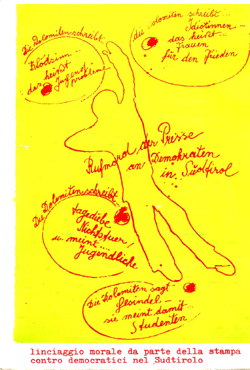 Die Dolomiten schreibt
Blödsinn...
heisst
das Jugend
probleme
die Dolomiten schreibt...
Idiotinnen -
das heisst...
Frauen
für den Frieden
Rufmord der Presse
an Demokraten
in Südtirol
Die Dolomiten schreibt
tagediebe
Nichtstuer,
meint...
Jugendliche
Die Dolomiten sagt -
Gesindel -
sie meint damit
Studenten!
linciaggio morale da parte della stampa
contro democratici nel Sudtirolo